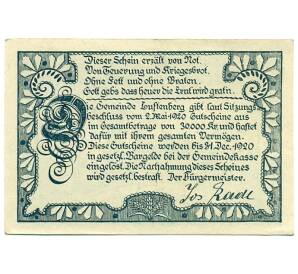 Dieser Schein erzält von Not.
Von Teuerung und Kriegesbrot.
Ohne Fett und ohne Braten.
Gott gebs dass heuer die Ernt wird gratn.
Die Gemeinde Luftenberg gibt laut Sitzungs
beschluss vom 2. Mai 1920 Gutscheine aus
im Gesamtbetrage von 30000 Kr. und haftet
dafür mit ihrem gesamten Vermögen.
Diese Gutscheine werden bis 31. Dec. 1920
in gesetzl. Bargelde bei der Gemeindekasse
eingelöst. Die Nachahmung dieses Scheines
wird gesetzl. bestraft. Der Bürgermeister.
Jos